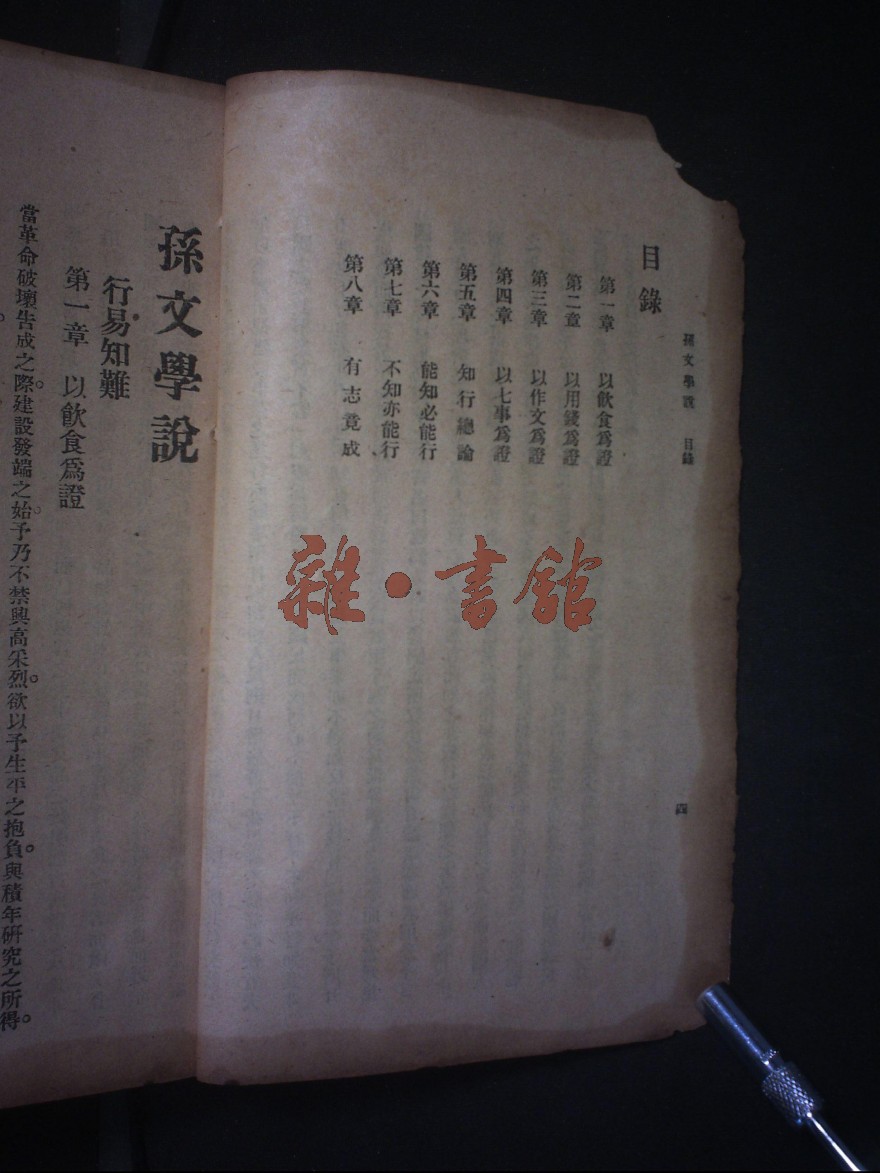 孫文學說　目錄
四
目錄
第一章　以飲食爲證
第二章　以用錢爲證
第三章　以作文爲證
第四章　以七事爲證
第五章　知行總論
第六章　能知必能行
第七章　不知亦能行
第八章　有志竟成
雜·書館
孫文學說
行易知難
第一章　以飲食爲證
當革命破壞告成之際。建設發端之始。予乃不禁興高采烈。欲以予生平之抱負。與積年研究之所得。